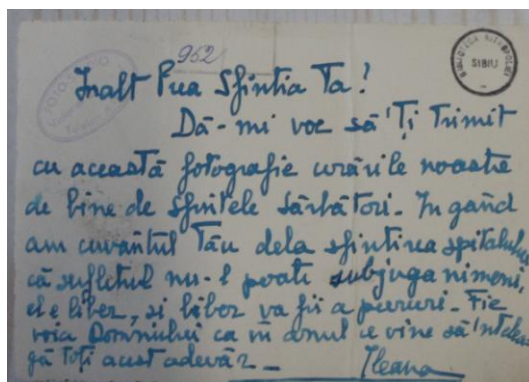 952
BIBLIOTECA MITROPOLIEI
SIBIU
FOTO
Inalt Prea Sfintia Ta!
Dă-mi voe să 'Ți trimit
cu această fotografie urările noastre
de bine de sfintele sărbători. In gând
am cuvântul Tău dela sfintirea spitalului
că sufletul nu-l poate subjuga nimeni,
el e liber, si liber va fii a pururi. Fie
voia Domnului ca în anul ce vine să 'nțelea
gă toți acest adevăr.
Ileana